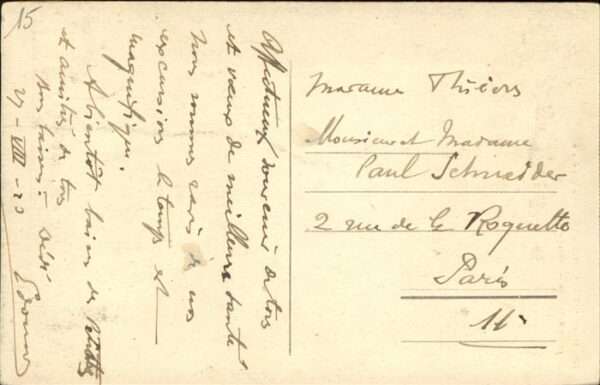 15
Affectueux souvenir de tous
et vœux de meilleure santé
Nous sommes ravis de nos
excursions le temps est
magnifique.
A bientôt baisers de
et amitiés de tous
Bons baisers
27 - VIII - 20
Madame Thiers
Monsieur et Madame
Paul Schneider
2 rue de la Roquette
Paris
11e